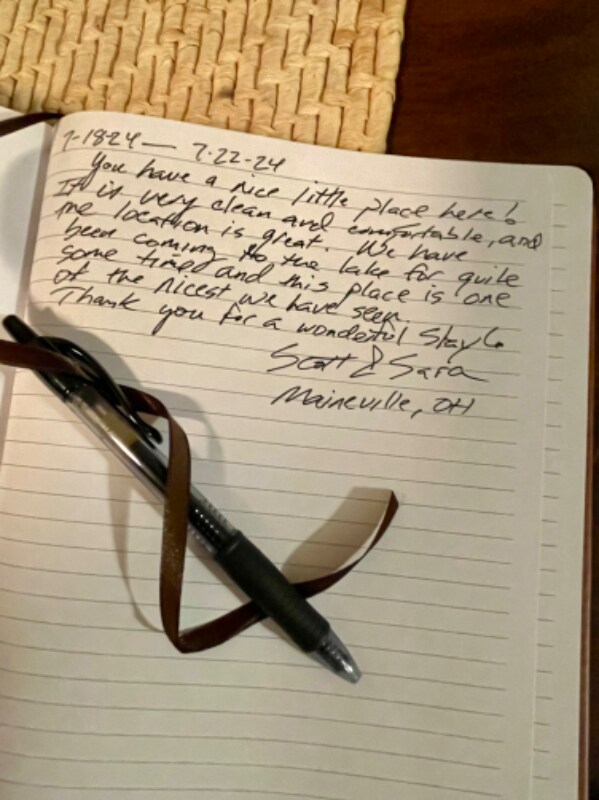 7-18-24 — 7-22-24
You have a nice little place here!
It is very clean and comfortable, and
the location is great. We have
been coming to the lake for quite
some time and this place is one
of the nicest we have seen.
Thank you for a wonderful stay!
Scott & Sara
Maineville, OH